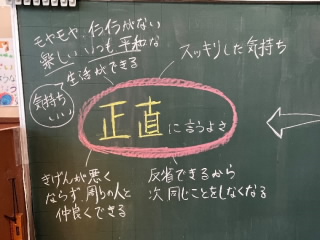 モヤモヤ、イライラがない
楽しい いつも平和な
生活ができる
スッキリした気持ち
気持ち
いい
正直に言うよさ
きげんが悪く
ならず、周りの人と
仲良くできる
反省できるから
次同じことをしなくなる